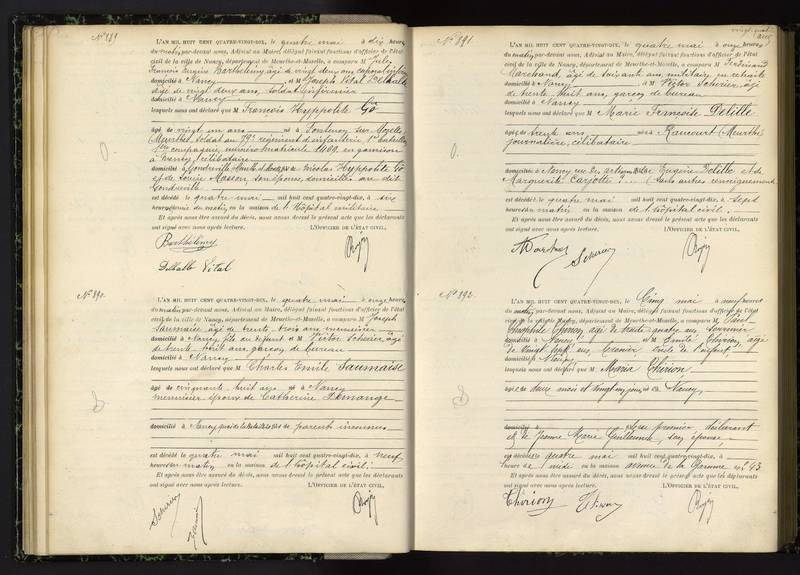 N° 889
L'AN MIL HUIT CENT QUATRE-VINGT-DIX, le quatre mai à dix heures
du matin, par-devant nous, Adjoint au Maire, délégué faisant fonctions d'officier de l'état
civil de la ville de Nancy, département de Meurthe-et-Moselle, a comparu M Jules
François Eugène Barthélemy âgé de vingt deux ans caporal
domicilié à Nancy et M Joseph Vital Delhalle
âgé de vingt deux ans, soldat infirmier
domicilié à Nancy
lesquels nous ont déclaré que M François Hyppolite Gô
âgé de vingt un ans né à Fontenoy sur Moselle
(Meurthe), soldat au régiment d'infanterie bataillon
compagnie, numéro matricule 1469, en garnison
à Nancy, célibataire
domicilié à Gondreville fils de Nicolas Hyppolite Gô
et de Louise Masson, son épouse, domiciliés au dit
Gondreville
est décédé le quatre mai mil huit cent quatre-vingt-dix, à six
heures du matin, en la maison de l'hôpital militaire
Et après nous être assuré du décès, nous avons dressé le présent acte que les déclarants
ont signé avec nous après lecture. L'OFFICIER DE L'ÉTAT CIVIL,
Barthélemy
Delhalle Vital
N° 890
L'AN MIL HUIT CENT QUATRE-VINGT-DIX, le quatre mai à onze heures
du matin par-devant nous, Adjoint au Maire, délégué faisant fonctions d'officier de l'état
civil de la ville de Nancy, département de Meurthe-et-Moselle, a comparu M Joseph
Saumaise âgé de trente trois ans menuisier
domicilié à Nancy, fils du défunt et M Victor Scherier, âgé
de trente huit ans, garçon de bureau
domicilié à Nancy
lesquels nous ont déclaré que M Charles Emile Saumaise
âgé de cinquante huit ans né à Nancy
menuisier époux de Catherine Demange
domicilié à Nancy fils de parents inconnus
est décédé le quatre mai mil huit cent quatre-vingt-dix, à neuf
heures du matin en la maison de l'hôpital civil.
Et après nous être assuré du décès, nous avons dressé le présent acte que les déclarants
ont signé avec nous après lecture. L'OFFICIER DE L'ÉTAT CIVIL,
Scherier
N° 891
L'AN MIL HUIT CENT QUATRE-VINGT-DIX, le quatre mai à onze heures
du matin, par-devant nous, Adjoint au Maire, délégué faisant fonctions d'officier de l'état
civil de la ville de Nancy, département de Meurthe-et-Moselle, a comparu M Ferdinand
Marchand, âgé de soixante ans, militaire en retraite
domicilié à Nancy et M Victor Scherier, âgé
de trente huit ans, garçon de bureau
domicilié à Nancy
lesquels nous ont déclaré que M Marie Françoise Delille
âgée de trente ans née à Raucourt (Meurthe)
journalière, célibataire
domiciliée à Nancy fille de Eugène Delille et de
Marguerite (sans autres renseignements)
est décédée le quatre mai mil huit cent quatre-vingt-dix, à sept
heures du matin en la maison de l'hôpital civil.
Et après nous être assuré du décès, nous avons dressé le présent acte que les déclarants
ont signé avec nous après lecture. L'OFFICIER DE L'ÉTAT CIVIL,
Scherier
N° 892
L'AN MIL HUIT CENT QUATRE-VINGT-DIX, le cinq mai à neuf heures
du matin, par-devant nous, Adjoint au Maire, délégué faisant fonctions d'officier de l'état
civil de la ville de Nancy, département de Meurthe-et-Moselle, a comparu M Paul
Théophile Thirion, âgé de trente quatre ans
domicilié à Nancy et M Emile Thirion, âgé
de vingt sept ans oncle de l'enfant
domicilié à Nancy
lesquels nous ont déclaré que M Maria Thirion
âgée de deux mois et vingt un jours née à Nancy,
domiciliée à premier déclarant
et de Jeanne Marie Guillaume, son épouse
est décédée le quatre mai mil huit cent quatre-vingt-dix, à
heure de midi en la maison avenue de la Garenne n° 43
Et après nous être assuré du décès, nous avons dressé le présent acte que les déclarants
ont signé avec nous après lecture. L'OFFICIER DE L'ÉTAT CIVIL,
Thirion Thirion